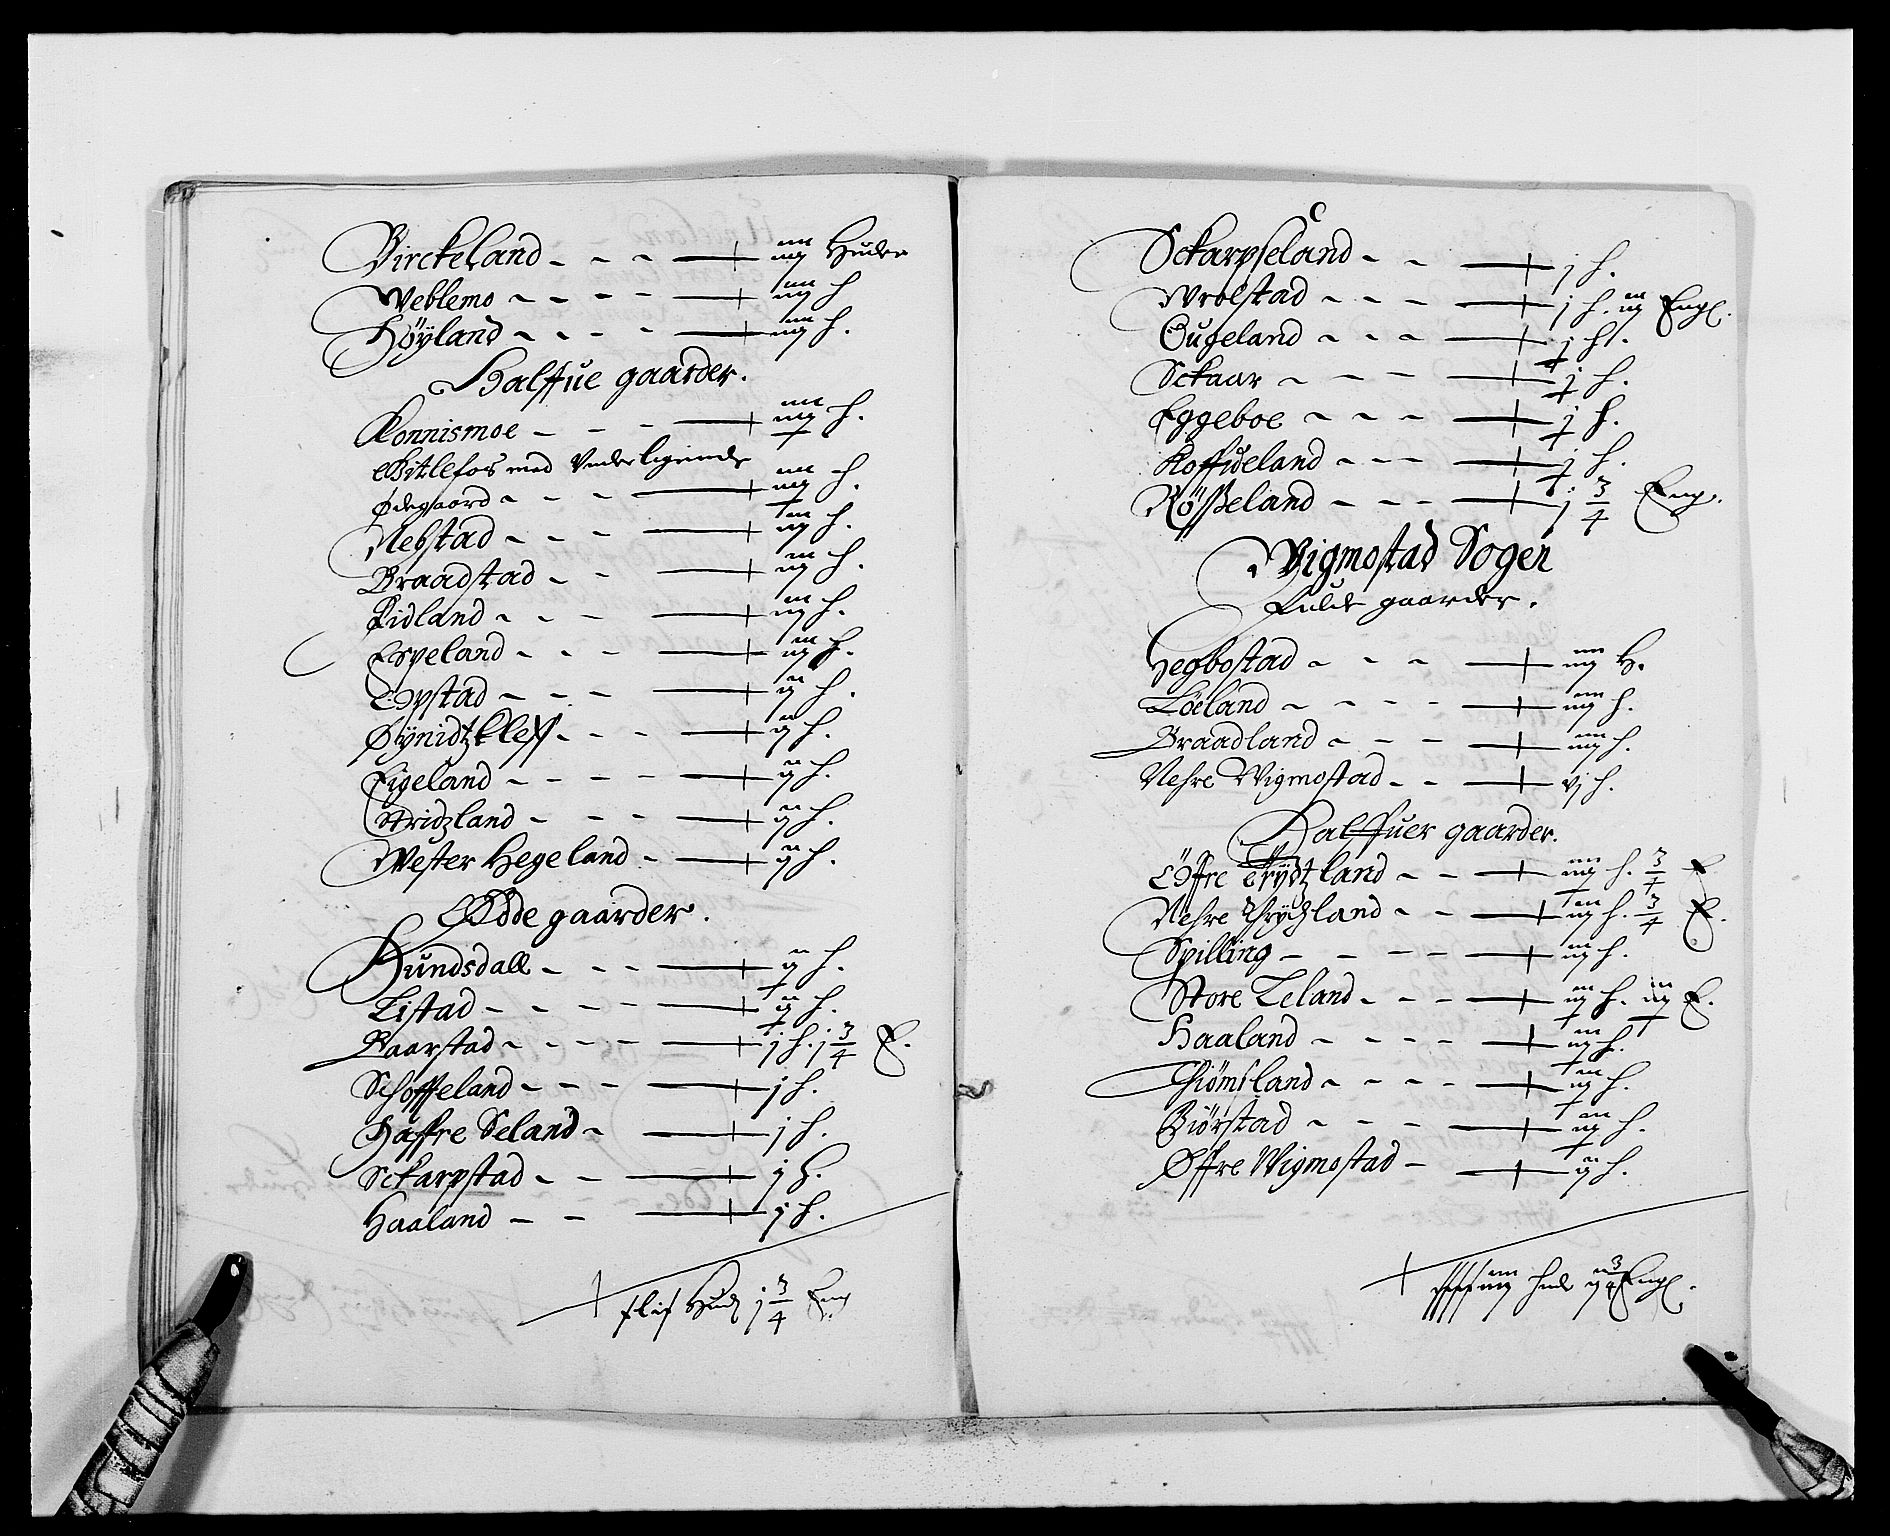 Birckeland - - - iiij Huder
Weblemo - - - - iiij h
Höyland - - - - iiij h.
Halffue gaarder.
Konnismoe - - - iiij h.
Gitlefos med Underligende
Ødegaard - - - iiij h.
Nebstad - - - iij h.
Braadstad - - iij h.
Kidland - - - iij h.
Espeland - - - iij h.
Opstad - - - ij h.
Øÿnidtzkleff - - - ij h.
Eigeland - - - - ij h.
Stridzland - - - - ij h.
Wester Hegeland - ij h.
Ødde gaarder.
Hundsdall - - - ij h.
Listad - - - - ij h.
Baarstad - - - - - j h. j 3/4 E.
Schoffteland - - - j h.
Haffre Seland - j h.
Sckarpstad - - j h.
Haaland - - j h.
Hud j 3/4 Eng
Sckarpseland - - j h.
Wrolstad - - - j h. iij Engl.
Ougeland - - - j h.
Sckaar - - - j h.
Eggeboe - - - j h.
Koffueland - - - j h.
Rösseland - - - j 3/4 Eng.
Vigmostad Sogen
Fulde gaarder.
Hegbostad - - - iiij H.
Löeland - - - - iiij h.
Braadland - - - iiij h.
Nehre Wigmostad - - vj h.
Halffuer gaarder.
Öffre Trÿdtzland - - iiij h. 3/4 E
Nehre Thrÿdzland - - iij h. 3/4 E.
Spilling - - - - iij h.
Store Leland - - - iij h. iij E.
Haaland - - - - iij h.
Thiömsland - - - - iij h.
Biörstad - - - iij h.
Øffre Wigmostad - ij h.
hude 3/4 Engl.